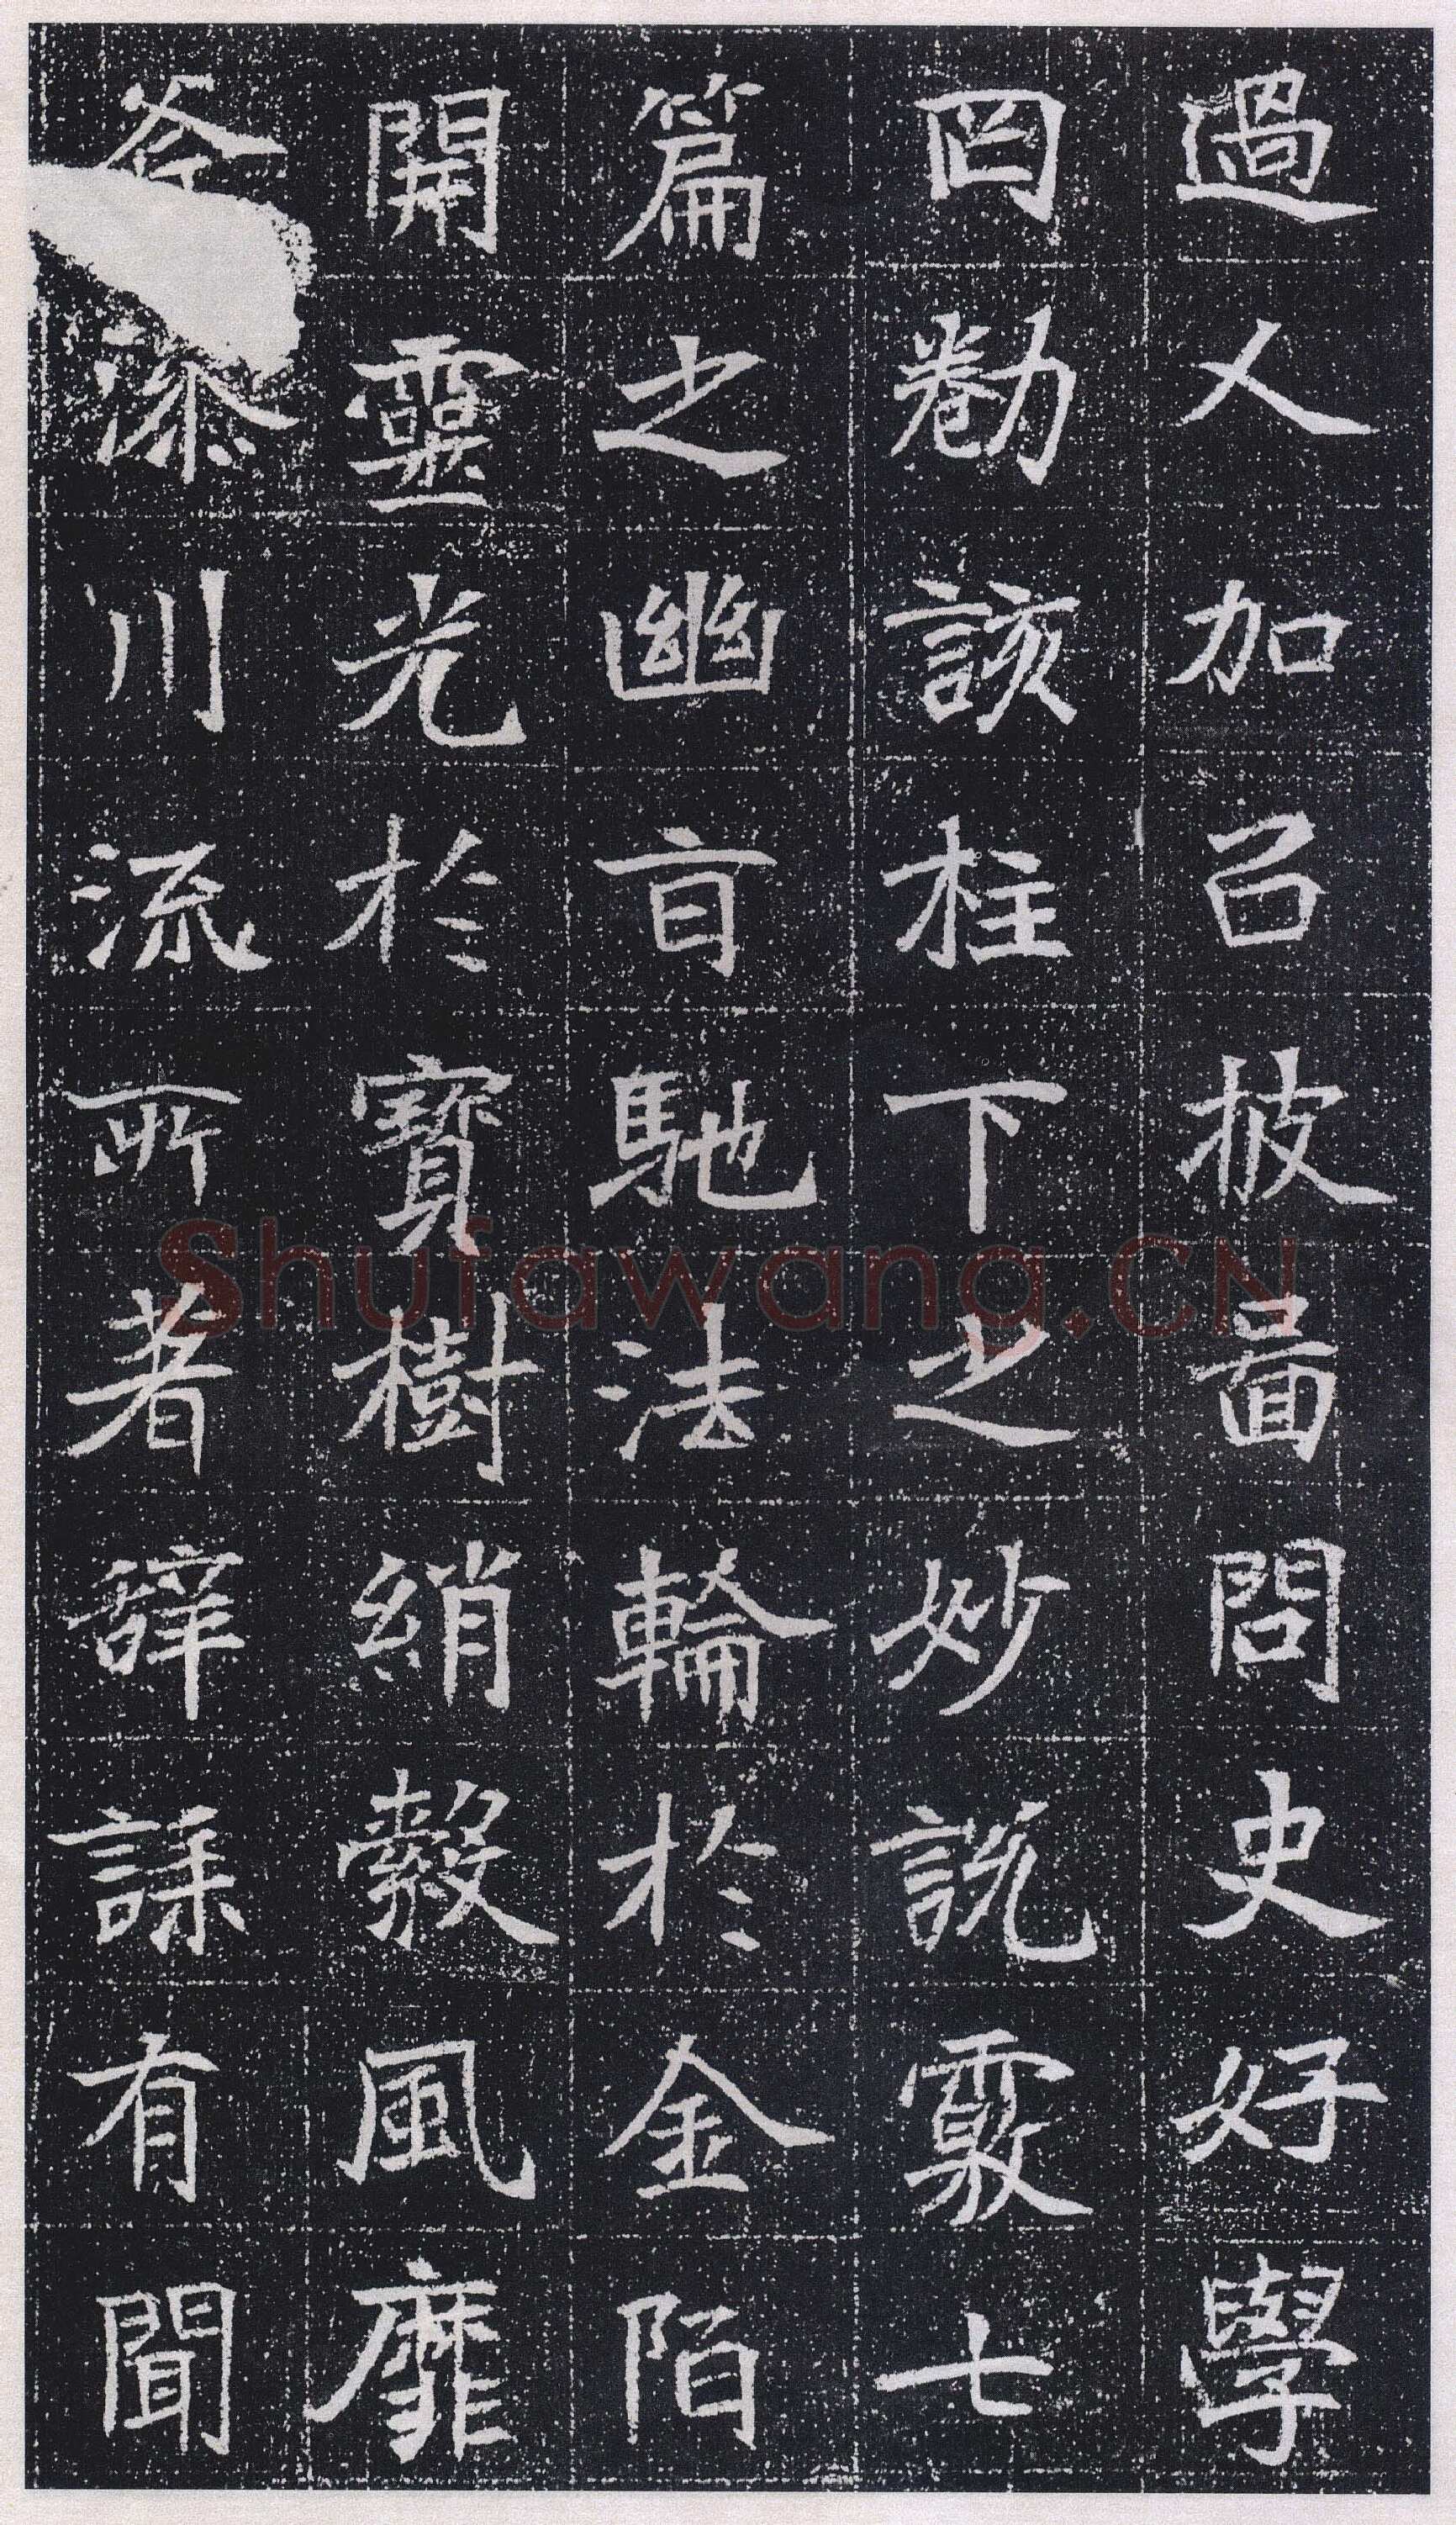 過人加㠯披啚問史好學
罔勌該柱下之妙說覈七
篇之幽旨馳法輪於金陌
開靈光於寶樹綃縠風靡
川流所著辭誄有聞
Shufawang.CN